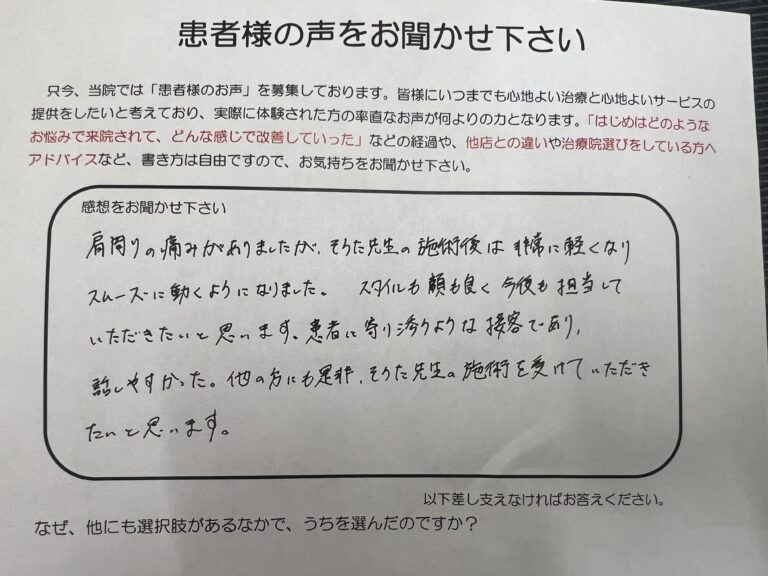 患者様の声をお聞かせ下さい
只今、当院では「患者様のお声」を募集しております。皆様にいつまでも心地よい治療と心地よいサービスの
提供をしたいと考えており、実際に体験された方の率直なお声が何よりの力となります。「はじめはどのような
お悩みで来院されて、どんな感じで改善していった」などの経過や、他店との違いや治療院選びをしている方へ
アドバイスなど、書き方は自由ですので、お気持ちをお聞かせ下さい。
感想をお聞かせ下さい
肩周りの痛みがありましたが、そうた先生の施術後は非常に軽くなり
スムーズに動くようになりました。 スタイルも顔も良く今後も担当して
いただきたいと思います。患者に寄り添うような接客であり、
話しやすかった。他の方にも是非、そうた先生の施術を受けていただき
たいと思います。
以下差し支えなければお答えください。
なぜ、他にも選択肢があるなかで、うちを選んだのですか？